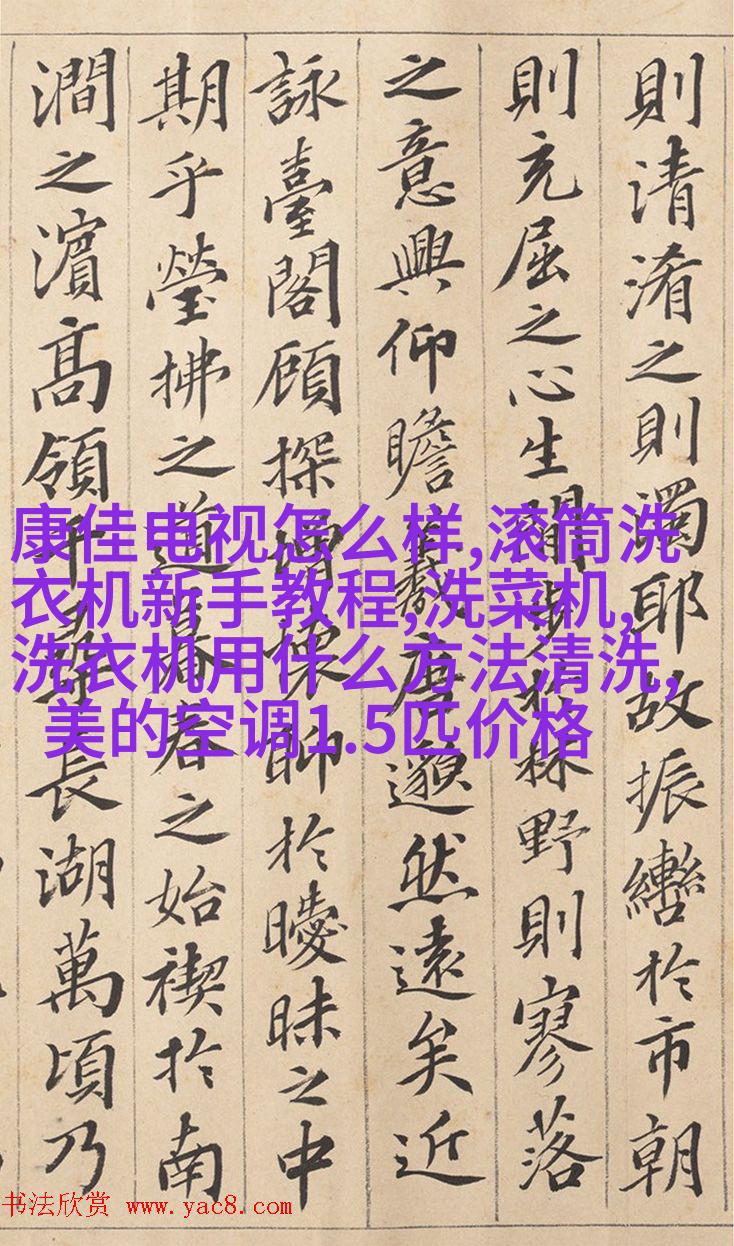 則清淆之則濁耶故振轡於市朝
則充屈之心生閒步於林野則寥落
之意興仰瞻羲唐邈然遠矣近
詠臺閣顧探增懷聊於曖昧之中
期乎瑩拂之道暮春之始禊於南
澗之濱高領千尋長湖萬頃乃
康佳电视怎么样,滚筒洗
衣机新手教程,洗菜机,
洗衣机用什么方法清洗,
美的空调1.5匹价格
书法欣赏 www.yac8.com